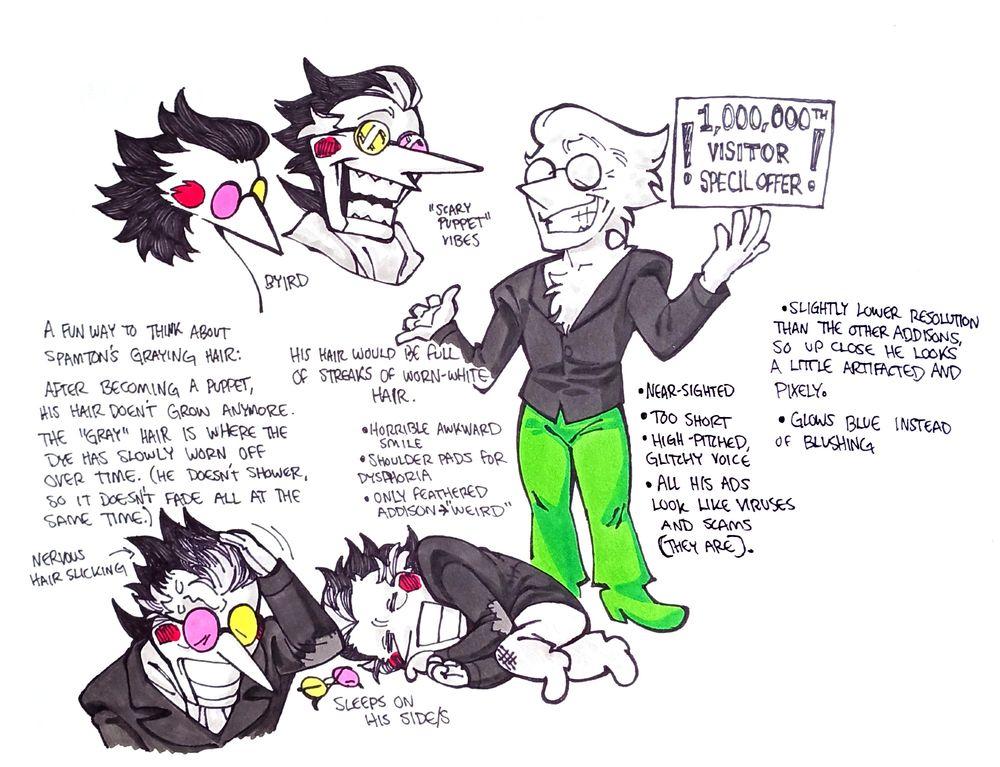 1,000,000TH
VISITOR
SPECIL OFFER
"SCARY
PUPPET"
VIBES
BYIRD
A FUN WAY TO THINK ABOUT
SPAMTON'S GRAYING HAIR:
AFTER BECOMING A PUPPET,
HIS HAIR DOEN'T GROW ANYMORE.
THE "GRAY" HAIR IS WHERE THE
DYE HAS SLOWLY WORN OFF
OVER TIME. (HE DOESN'T SHOWER,
SO IT DOESN'T FADE ALL AT THE
SAME TIME.)
HIS HAIR WOULD BE FULL
OF STREAKS OF WORN-WHITE
HAIR.
• HORRIBLE AWKWARD
SMILE
• SHOULDER PADS FOR
DYSPHORIA
• ONLY FEATHERED
ADDISON → "WEIRD"
• NEAR-SIGHTED
• TOO SHORT
• HIGH-PITCHED,
GLITCHY VOICE
• ALL HIS ADS
LOOK LIKE VIRUSES
AND SCAMS
(THEY ARE).
• SLIGHTLY LOWER RESOLUTION
THAN THE OTHER ADDISONS,
SO UP CLOSE HE LOOKS
A LITTLE ARTIFACTED AND
PIXELY.
• GLOWS BLUE INSTEAD
OF BLUSHING
NERVOUS
HAIR SLICKING
SLEEPS ON
HIS SIDE/S